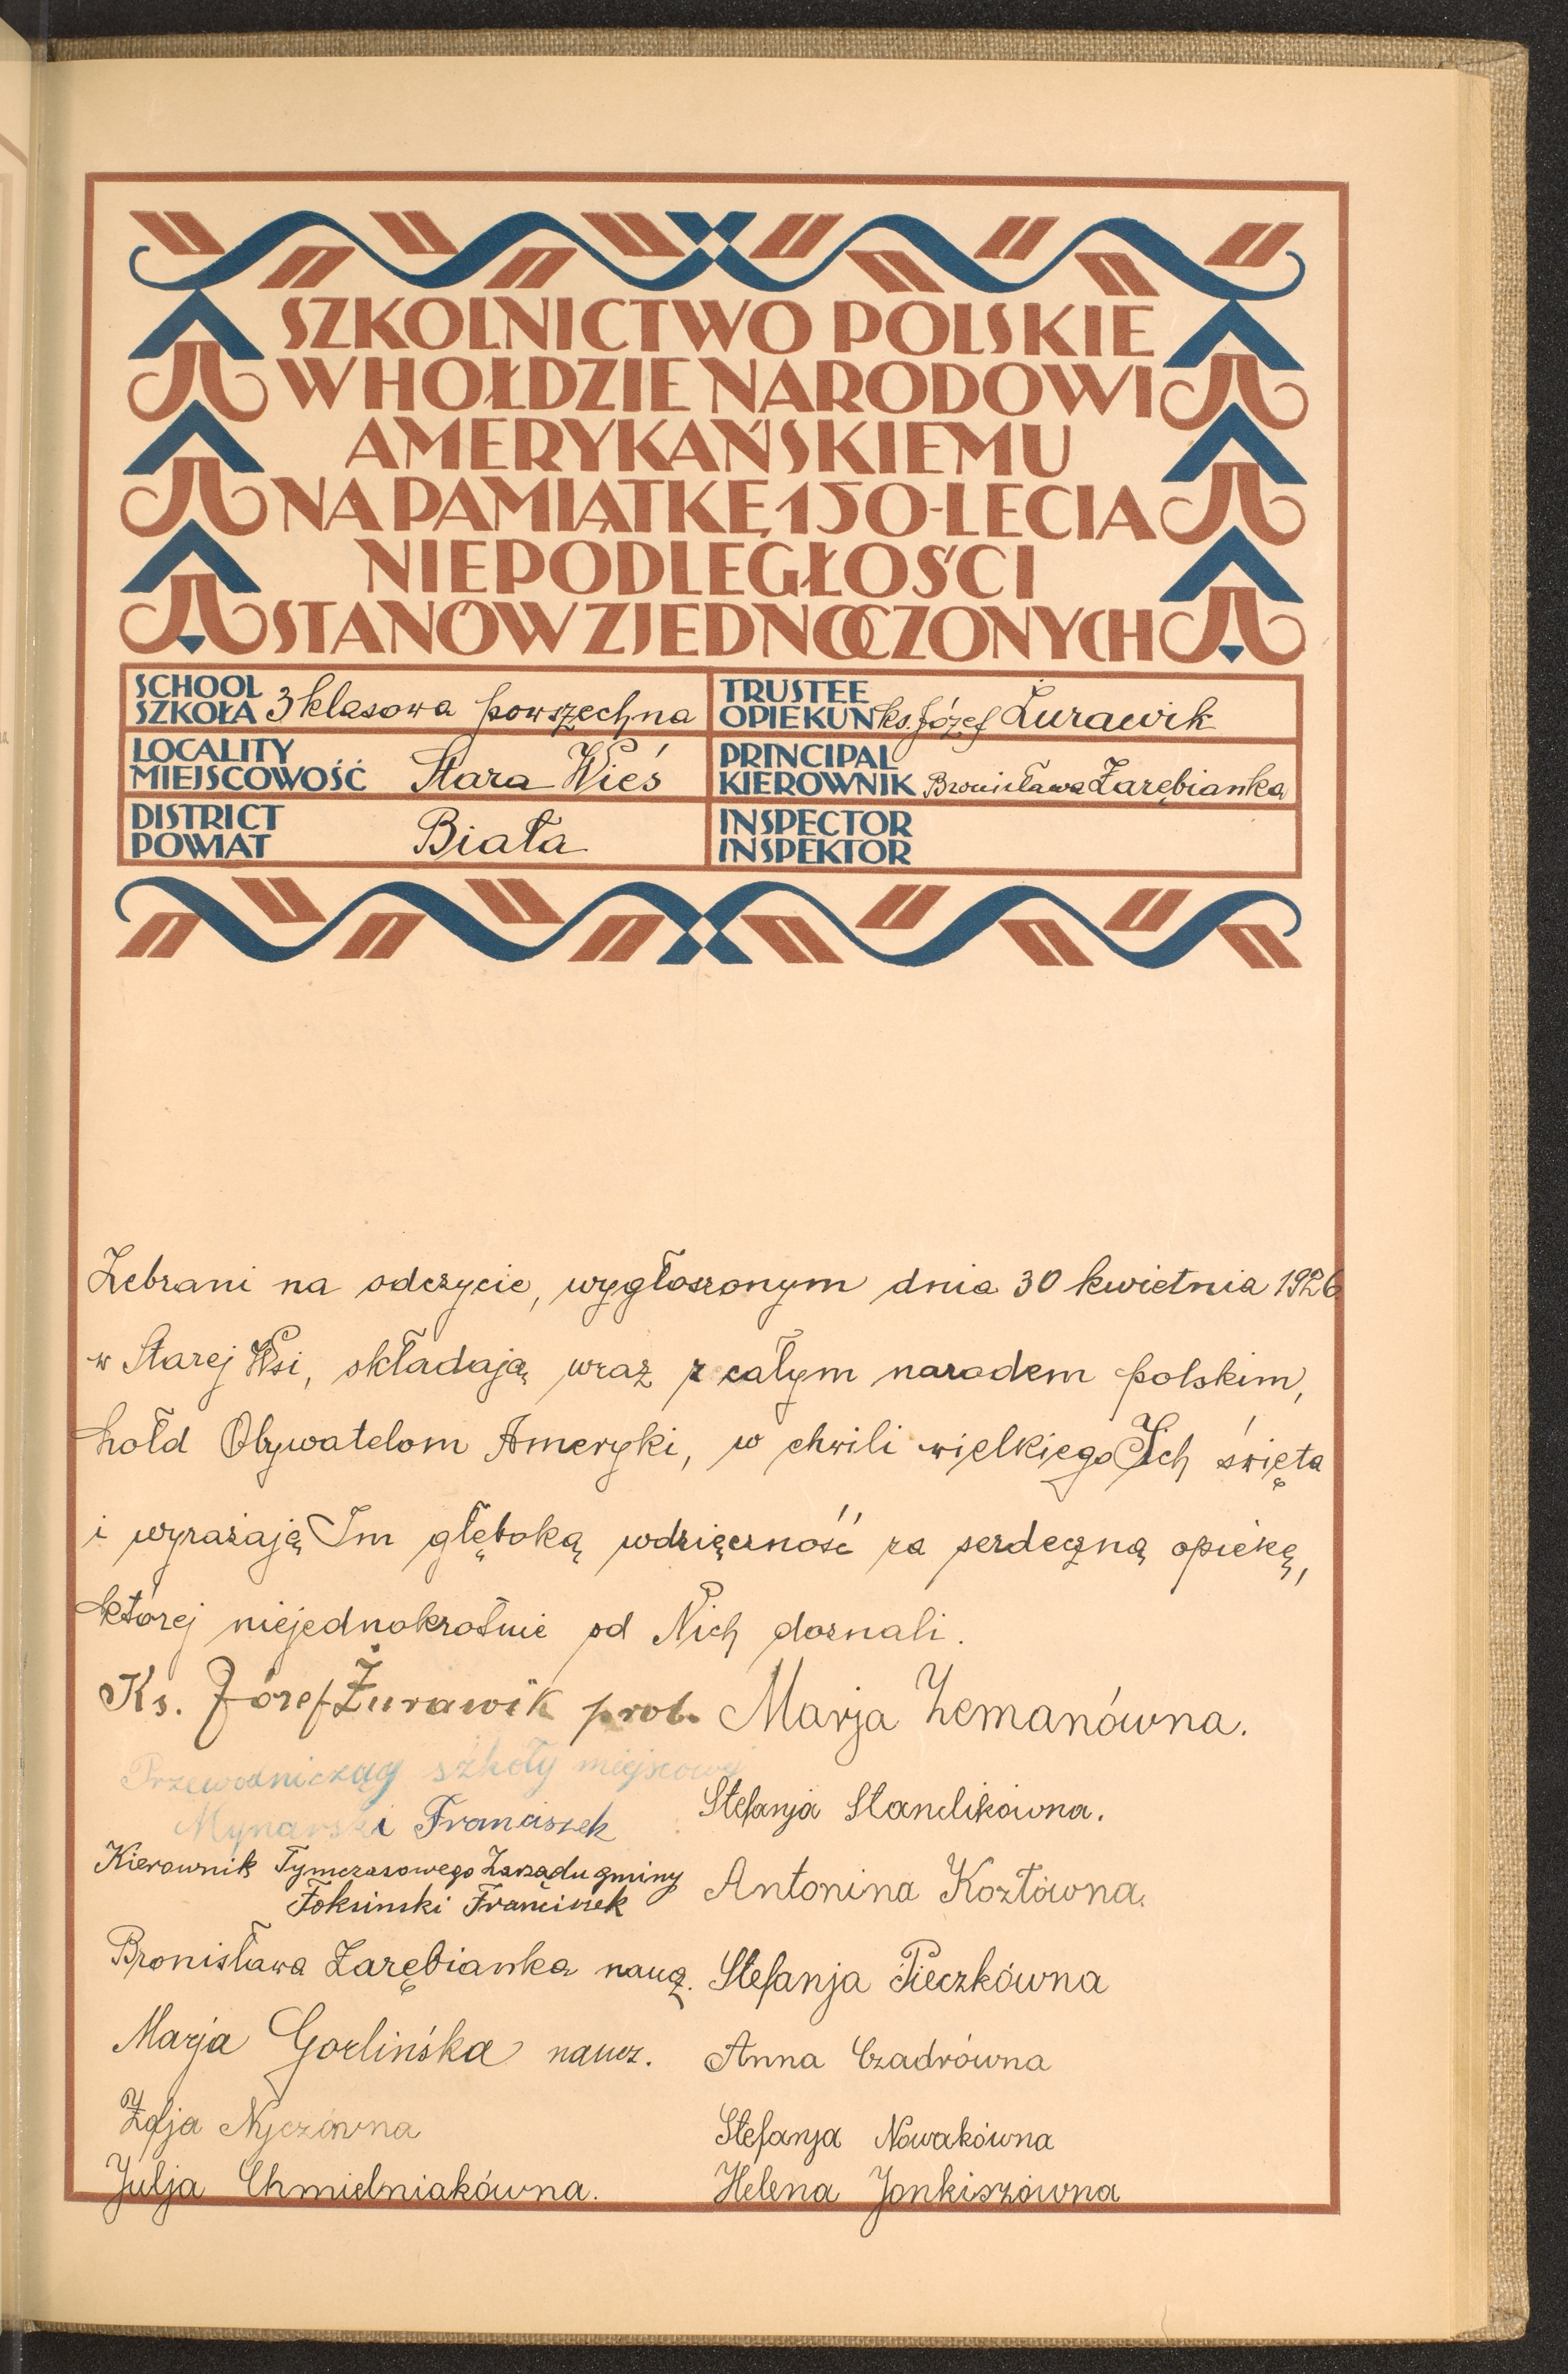 SZKOLNICTWO POLSKIE
W HOŁDZIE NARODOWI
AMERYKAŃSKIEMU
NA PAMIĄTKĘ 150-LECIA
NIEPODLEGŁOŚCI
STANÓW ZJEDNOCZONYCH
SCHOOL
SZKOŁA 3 klasowa powszechna
TRUSTEE
OPIEKUN ks. Józef Żurawik
LOCALITY
MIEJSCOWOŚĆ Stara Wieś
PRINCIPAL
KIEROWNIK Bronisława Zarębianka
DISTRICT
POWIAT Biała
INSPECTOR
INSPEKTOR
Zebrani na odczycie, wygłoszonym dnia 30 kwietnia 1926
w Starej Wsi, składają wraz z całym narodem polskim,
hołd Obywatelom Ameryki, w chwili wielkiego Ich święta
i wyrażają Im głęboką wdzięczność za serdeczną opiekę,
której niejednokrotnie od Nich doznali.
Ks. Józef Żurawik prob.
Przewodniczący szkoły miejscowej
Mynarski Franciszek
Kierownik Tymczasowego Zarządu gminy
Franciszek
Bronisława Zarębianka naucz.
Marja Gorlińska naucz.
Zofja Nyczówna
Julja Chmielniakówna.
Marja Zemanówna.
Stefanja Standikówna.
Antonina Kozłówna.
Stefanja Pieczkówna
Anna Czadrówna
Stefanja Nowakówna
Helena Jonkiszówna